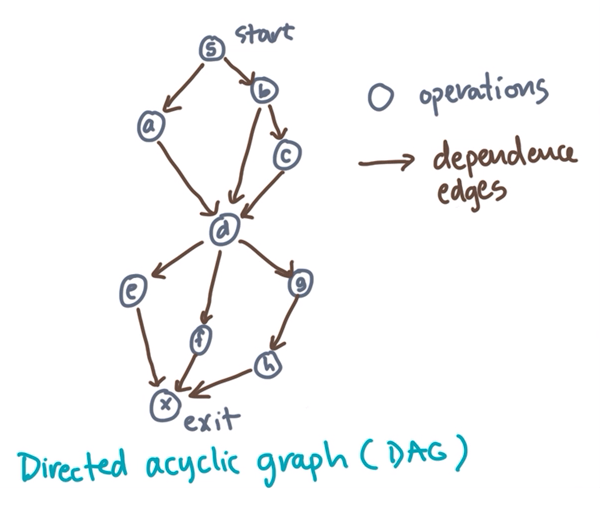 s start
b
a
c
d
e
g
f
h
x
exit
operations
dependence
edges
Directed acyclic graph (DAG)